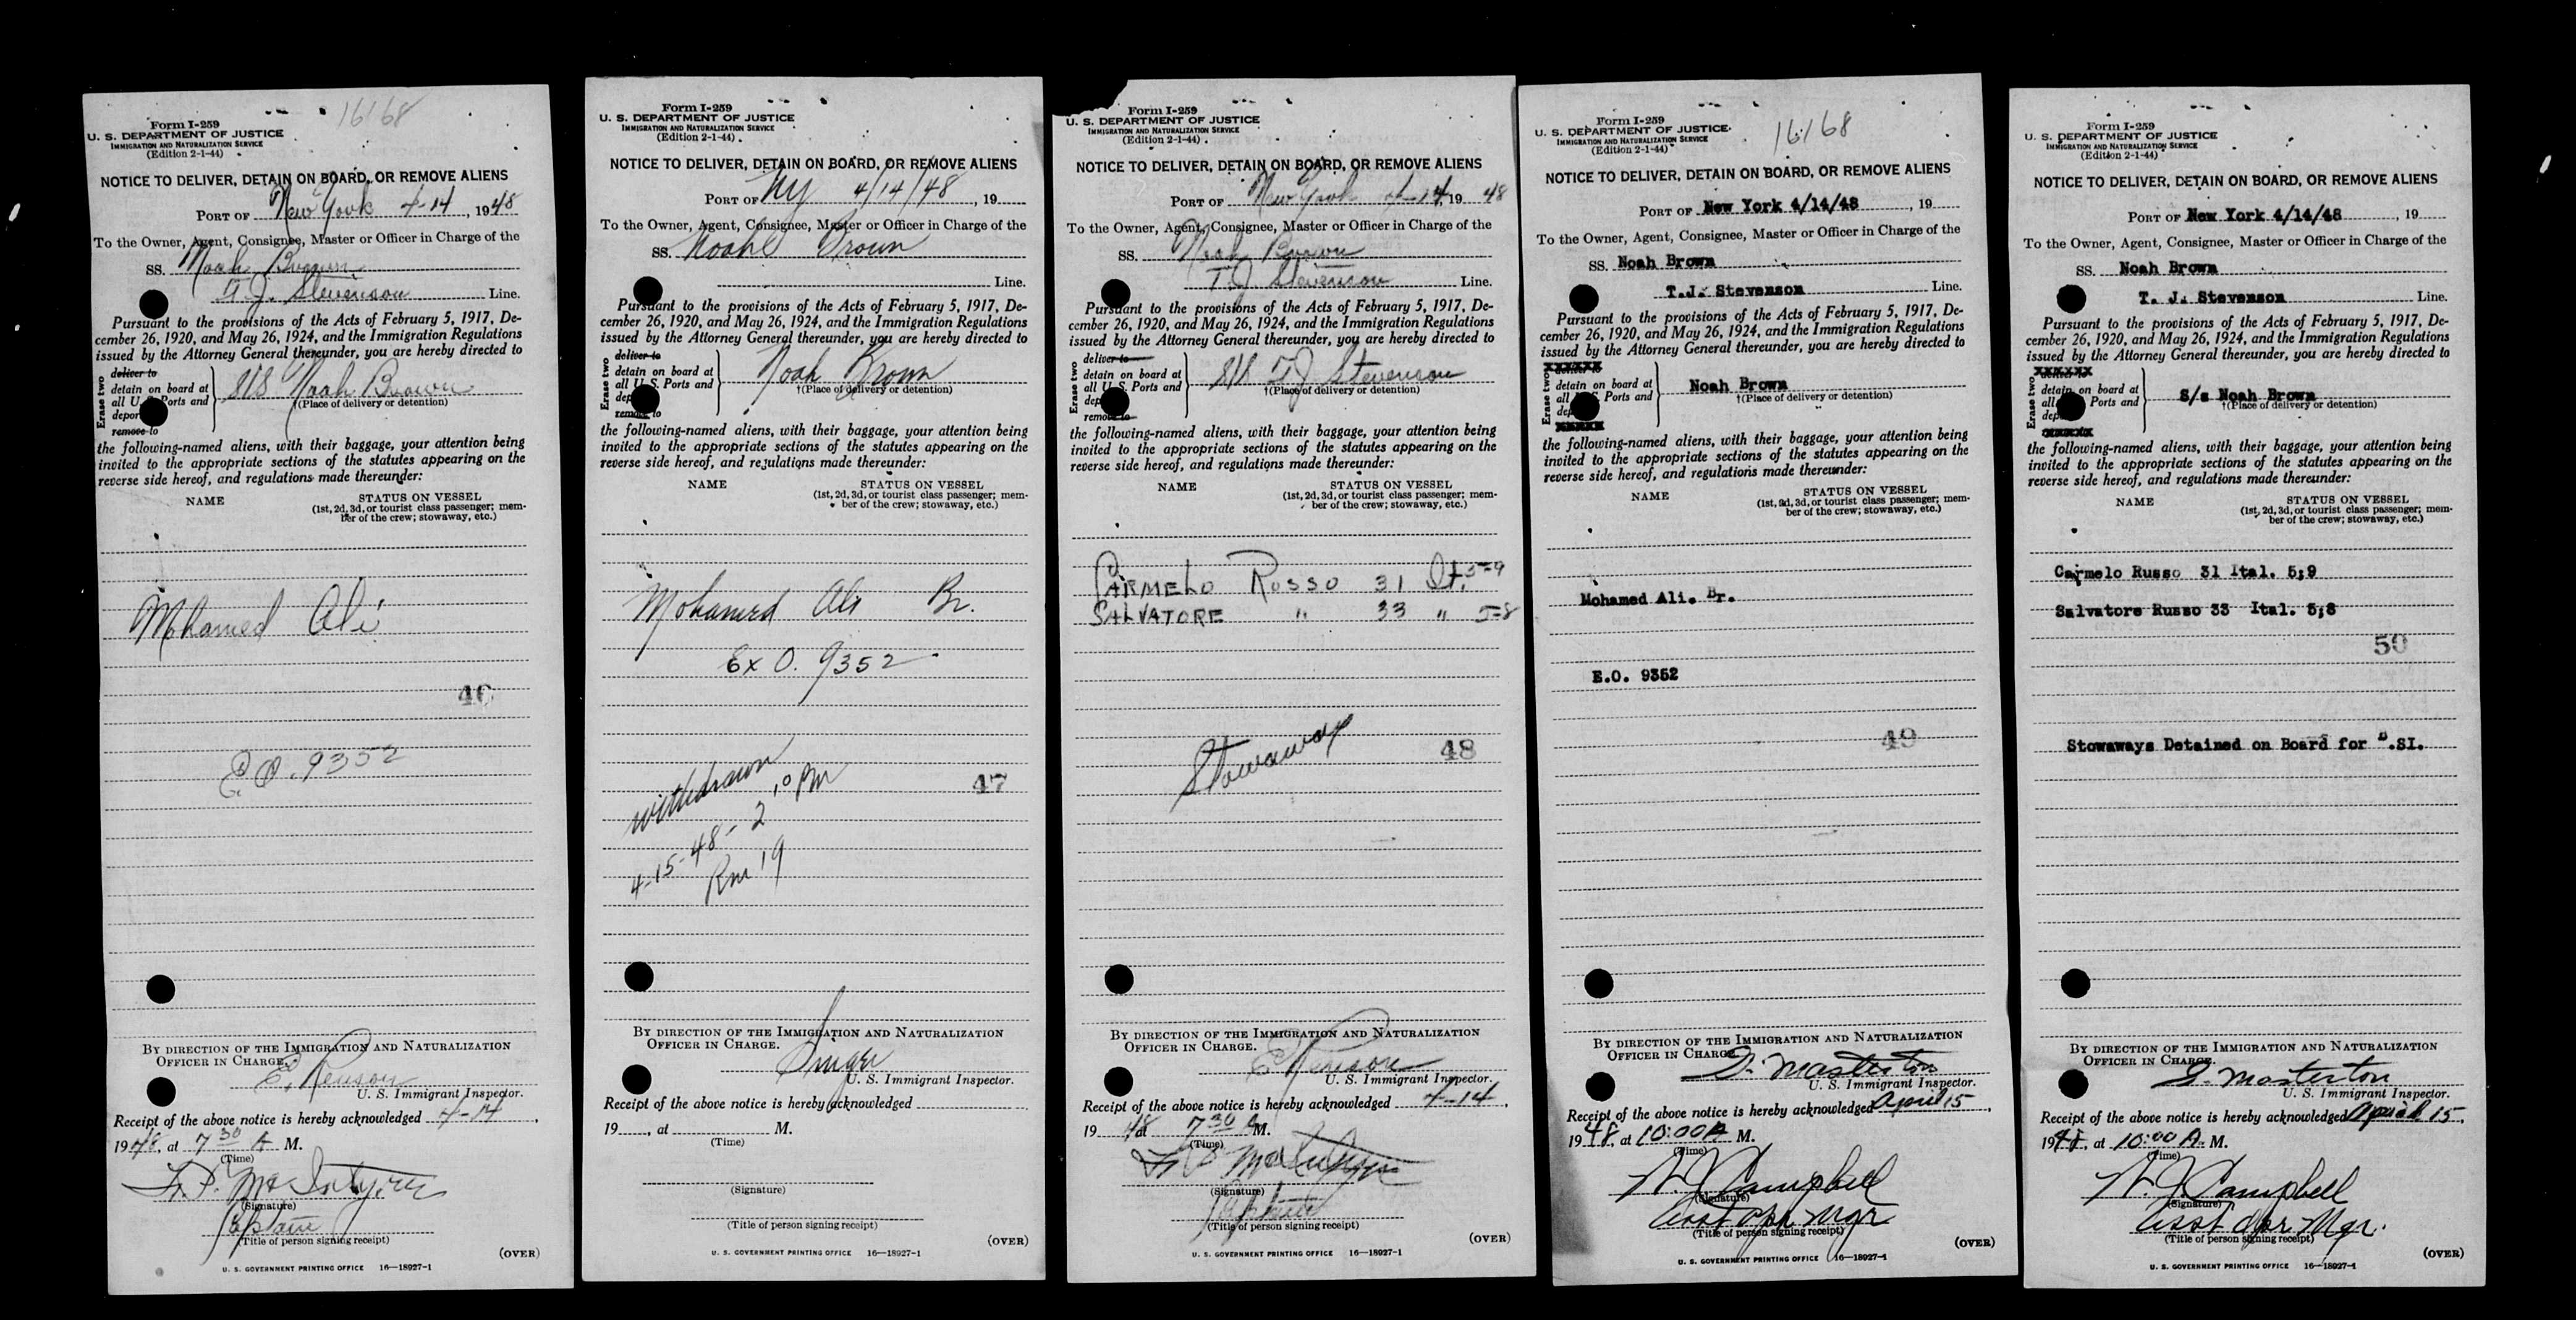 16168
Form I-259
U. S. DEPARTMENT OF JUSTICE
IMMIGRATION AND NATURALIZATION SERVICE
(Edition 2-1-44)
NOTICE TO DELIVER, DETAIN ON BOARD, OR REMOVE ALIENS
PORT OF New York 4-14, 1948
To the Owner, Agent, Consignee, Master or Officer in Charge of the
SS. Noah Brown
T.J. Stevenson Line.
Pursuant to the provisions of the Acts of February 5, 1917, De-
cember 26, 1920, and May 26, 1924, and the Immigration Regulations
issued by the Attorney General thereunder, you are hereby directed to
Erase two
deliver to
detain on board at
all U. S. Ports and
depor
remove to
S/S Noah Brown
†(Place of delivery or detention)
the following-named aliens, with their baggage, your attention being
invited to the appropriate sections of the statutes appearing on the
reverse side hereof, and regulations made thereunder:
NAME STATUS ON VESSEL
(1st, 2d, 3d, or tourist class passenger; mem-
ber of the crew; stowaway, etc.)
Mohamed Ali
46
E.O. 9352
BY DIRECTION OF THE IMMIGRATION AND NATURALIZATION
OFFICER IN CHARGE.
U. S. Immigrant Inspector.
Receipt of the above notice is hereby acknowledged 4-14,
1948, at 7 30 A M.
(Time)
McIntyre
(Signature)
Captain
(Title of person signing receipt)
(OVER)
U. S. GOVERNMENT PRINTING OFFICE 16—18927-1
Form I-259
U. S. DEPARTMENT OF JUSTICE
IMMIGRATION AND NATURALIZATION SERVICE
(Edition 2-1-44)
NOTICE TO DELIVER, DETAIN ON BOARD, OR REMOVE ALIENS
PORT OF NY 4/14/48, 19
To the Owner, Agent, Consignee, Master or Officer in Charge of the
SS. Noahl Brown
Line.
Pursuant to the provisions of the Acts of February 5, 1917, De-
cember 26, 1920, and May 26, 1924, and the Immigration Regulations
issued by the Attorney General thereunder, you are hereby directed to
Erase two
deliver to
detain on board at
all U. S. Ports and
dep
remove to
Noah Brown
†(Place of delivery or detention)
the following-named aliens, with their baggage, your attention being
invited to the appropriate sections of the statutes appearing on the
reverse side hereof, and regulations made thereunder:
NAME STATUS ON VESSEL
(1st, 2d, 3d, or tourist class passenger; mem-
ber of the crew; stowaway, etc.)
Mohamed Ali Br.
Ex O. 9352
withdrawn
4-15-48- 2 10 PM
Rm 19
47
BY DIRECTION OF THE IMMIGRATION AND NATURALIZATION
OFFICER IN CHARGE.
Singer
U. S. Immigrant Inspector.
Receipt of the above notice is hereby acknowledged
19, at M.
(Time)
(Signature)
(Title of person signing receipt)
(OVER)
U. S. GOVERNMENT PRINTING OFFICE 16—18927-1
Form I-259
U. S. DEPARTMENT OF JUSTICE
IMMIGRATION AND NATURALIZATION SERVICE
(Edition 2-1-44)
NOTICE TO DELIVER, DETAIN ON BOARD, OR REMOVE ALIENS
PORT OF New York 4-14, 19 48
To the Owner, Agent, Consignee, Master or Officer in Charge of the
SS. Noah Brown
T J Stevenson Line.
Pursuant to the provisions of the Acts of February 5, 1917, De-
cember 26, 1920, and May 26, 1924, and the Immigration Regulations
issued by the Attorney General thereunder, you are hereby directed to
Erase two
deliver to
detain on board at
all U. S. Ports and
dep
remove to
S/S T J Stevenson
†(Place of delivery or detention)
the following-named aliens, with their baggage, your attention being
invited to the appropriate sections of the statutes appearing on the
reverse side hereof, and regulations made thereunder:
NAME STATUS ON VESSEL
(1st, 2d, 3d, or tourist class passenger; mem-
ber of the crew; stowaway, etc.)
CARMELO RUSSO 31 It. 5-9
SALVATORE " 33 " 5-8
Stowaway
48
BY DIRECTION OF THE IMMIGRATION AND NATURALIZATION
OFFICER IN CHARGE.
U. S. Immigrant Inspector.
Receipt of the above notice is hereby acknowledged 4-14,
19 48 at 7 30 A M.
(Time)
McIntyre
(Signature)
Captain
(Title of person signing receipt)
(OVER)
U. S. GOVERNMENT PRINTING OFFICE 16—18927-1
Form I-259
U. S. DEPARTMENT OF JUSTICE
IMMIGRATION AND NATURALIZATION SERVICE
(Edition 2-1-44)
16168
NOTICE TO DELIVER, DETAIN ON BOARD, OR REMOVE ALIENS
PORT OF New York 4/14/48, 19
To the Owner, Agent, Consignee, Master or Officer in Charge of the
SS. Noah Brown
T.J. Stevenson Line.
Pursuant to the provisions of the Acts of February 5, 1917, De-
cember 26, 1920, and May 26, 1924, and the Immigration Regulations
issued by the Attorney General thereunder, you are hereby directed to
Erase two
XXXXXX
detain on board at
all U. S. Ports and
dep
XXXXX
Noah Brown
†(Place of delivery or detention)
the following-named aliens, with their baggage, your attention being
invited to the appropriate sections of the statutes appearing on the
reverse side hereof, and regulations made thereunder:
NAME STATUS ON VESSEL
(1st, 2d, 3d, or tourist class passenger; mem-
ber of the crew; stowaway, etc.)
Mohamed Ali. Br.
E.O. 9352
49
BY DIRECTION OF THE IMMIGRATION AND NATURALIZATION
OFFICER IN CHARGE
G. Masterton
U. S. Immigrant Inspector.
Receipt of the above notice is hereby acknowledged April 15,
1948, at 10:00 A M.
(Time)
Campbell
(Signature)
Asst Opr Mgr
(Title of person signing receipt)
(OVER)
U. S. GOVERNMENT PRINTING OFFICE 16—18927-1
Form I-259
U. S. DEPARTMENT OF JUSTICE
IMMIGRATION AND NATURALIZATION SERVICE
(Edition 2-1-44)
NOTICE TO DELIVER, DETAIN ON BOARD, OR REMOVE ALIENS
PORT OF New York 4/14/48, 19
To the Owner, Agent, Consignee, Master or Officer in Charge of the
SS. Noah Brown
T. J. Stevenson Line.
Pursuant to the provisions of the Acts of February 5, 1917, De-
cember 26, 1920, and May 26, 1924, and the Immigration Regulations
issued by the Attorney General thereunder, you are hereby directed to
Erase two
XXXXXX
detain on board at
all Ports and
dep
XXXXX
S/s Noah Brown
†(Place of delivery or detention)
the following-named aliens, with their baggage, your attention being
invited to the appropriate sections of the statutes appearing on the
reverse side hereof, and regulations made thereunder:
NAME STATUS ON VESSEL
(1st, 2d, 3d, or tourist class passenger; mem-
ber of the crew; stowaway, etc.)
Carmelo Russo 31 Ital. 5;9
Salvatore Russo 33 Ital. 5;8
50
Stowaways Detained on Board for B.SI.
BY DIRECTION OF THE IMMIGRATION AND NATURALIZATION
OFFICER IN CHARGE.
G. Masterton
U. S. Immigrant Inspector.
Receipt of the above notice is hereby acknowledged April 15,
1948, at 10:00 A. M.
(Time)
Campbell
(Signature)
Asst Opr Mgr.
(Title of person signing receipt)
(OVER)
U. S. GOVERNMENT PRINTING OFFICE 16—18927-1